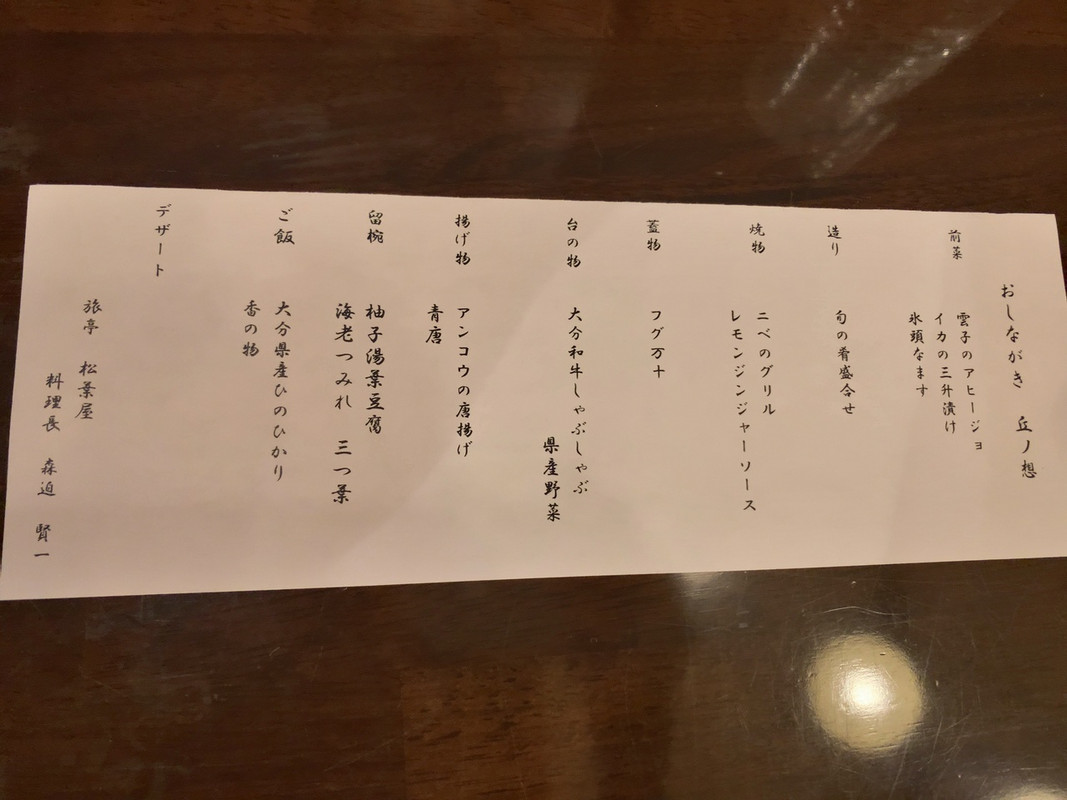 おしながき　丘ノ想
前菜
雲子のアヒージョ
イカの三升漬け
氷頭なます
造り
旬の肴盛合せ
焼物
ニベのグリル
レモンジンジャーソース
蓋物
フグ万十
台の物
大分和牛しゃぶしゃぶ
県産野菜
揚げ物
アンコウの唐揚げ
青唐
留椀
柚子湯葉豆腐
海老つみれ　三つ葉
ご飯
大分県産ひのひかり
香の物
デザート
旅亭　松葉屋
料理長　森迫　賢一